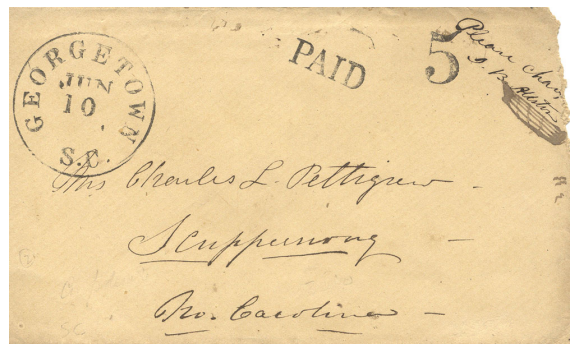 GEORGETOWN
JUN
10
S.C.
PAID
5
Please
Mrs Charles L. Pettigrew
Scuppernong
No. Carolina